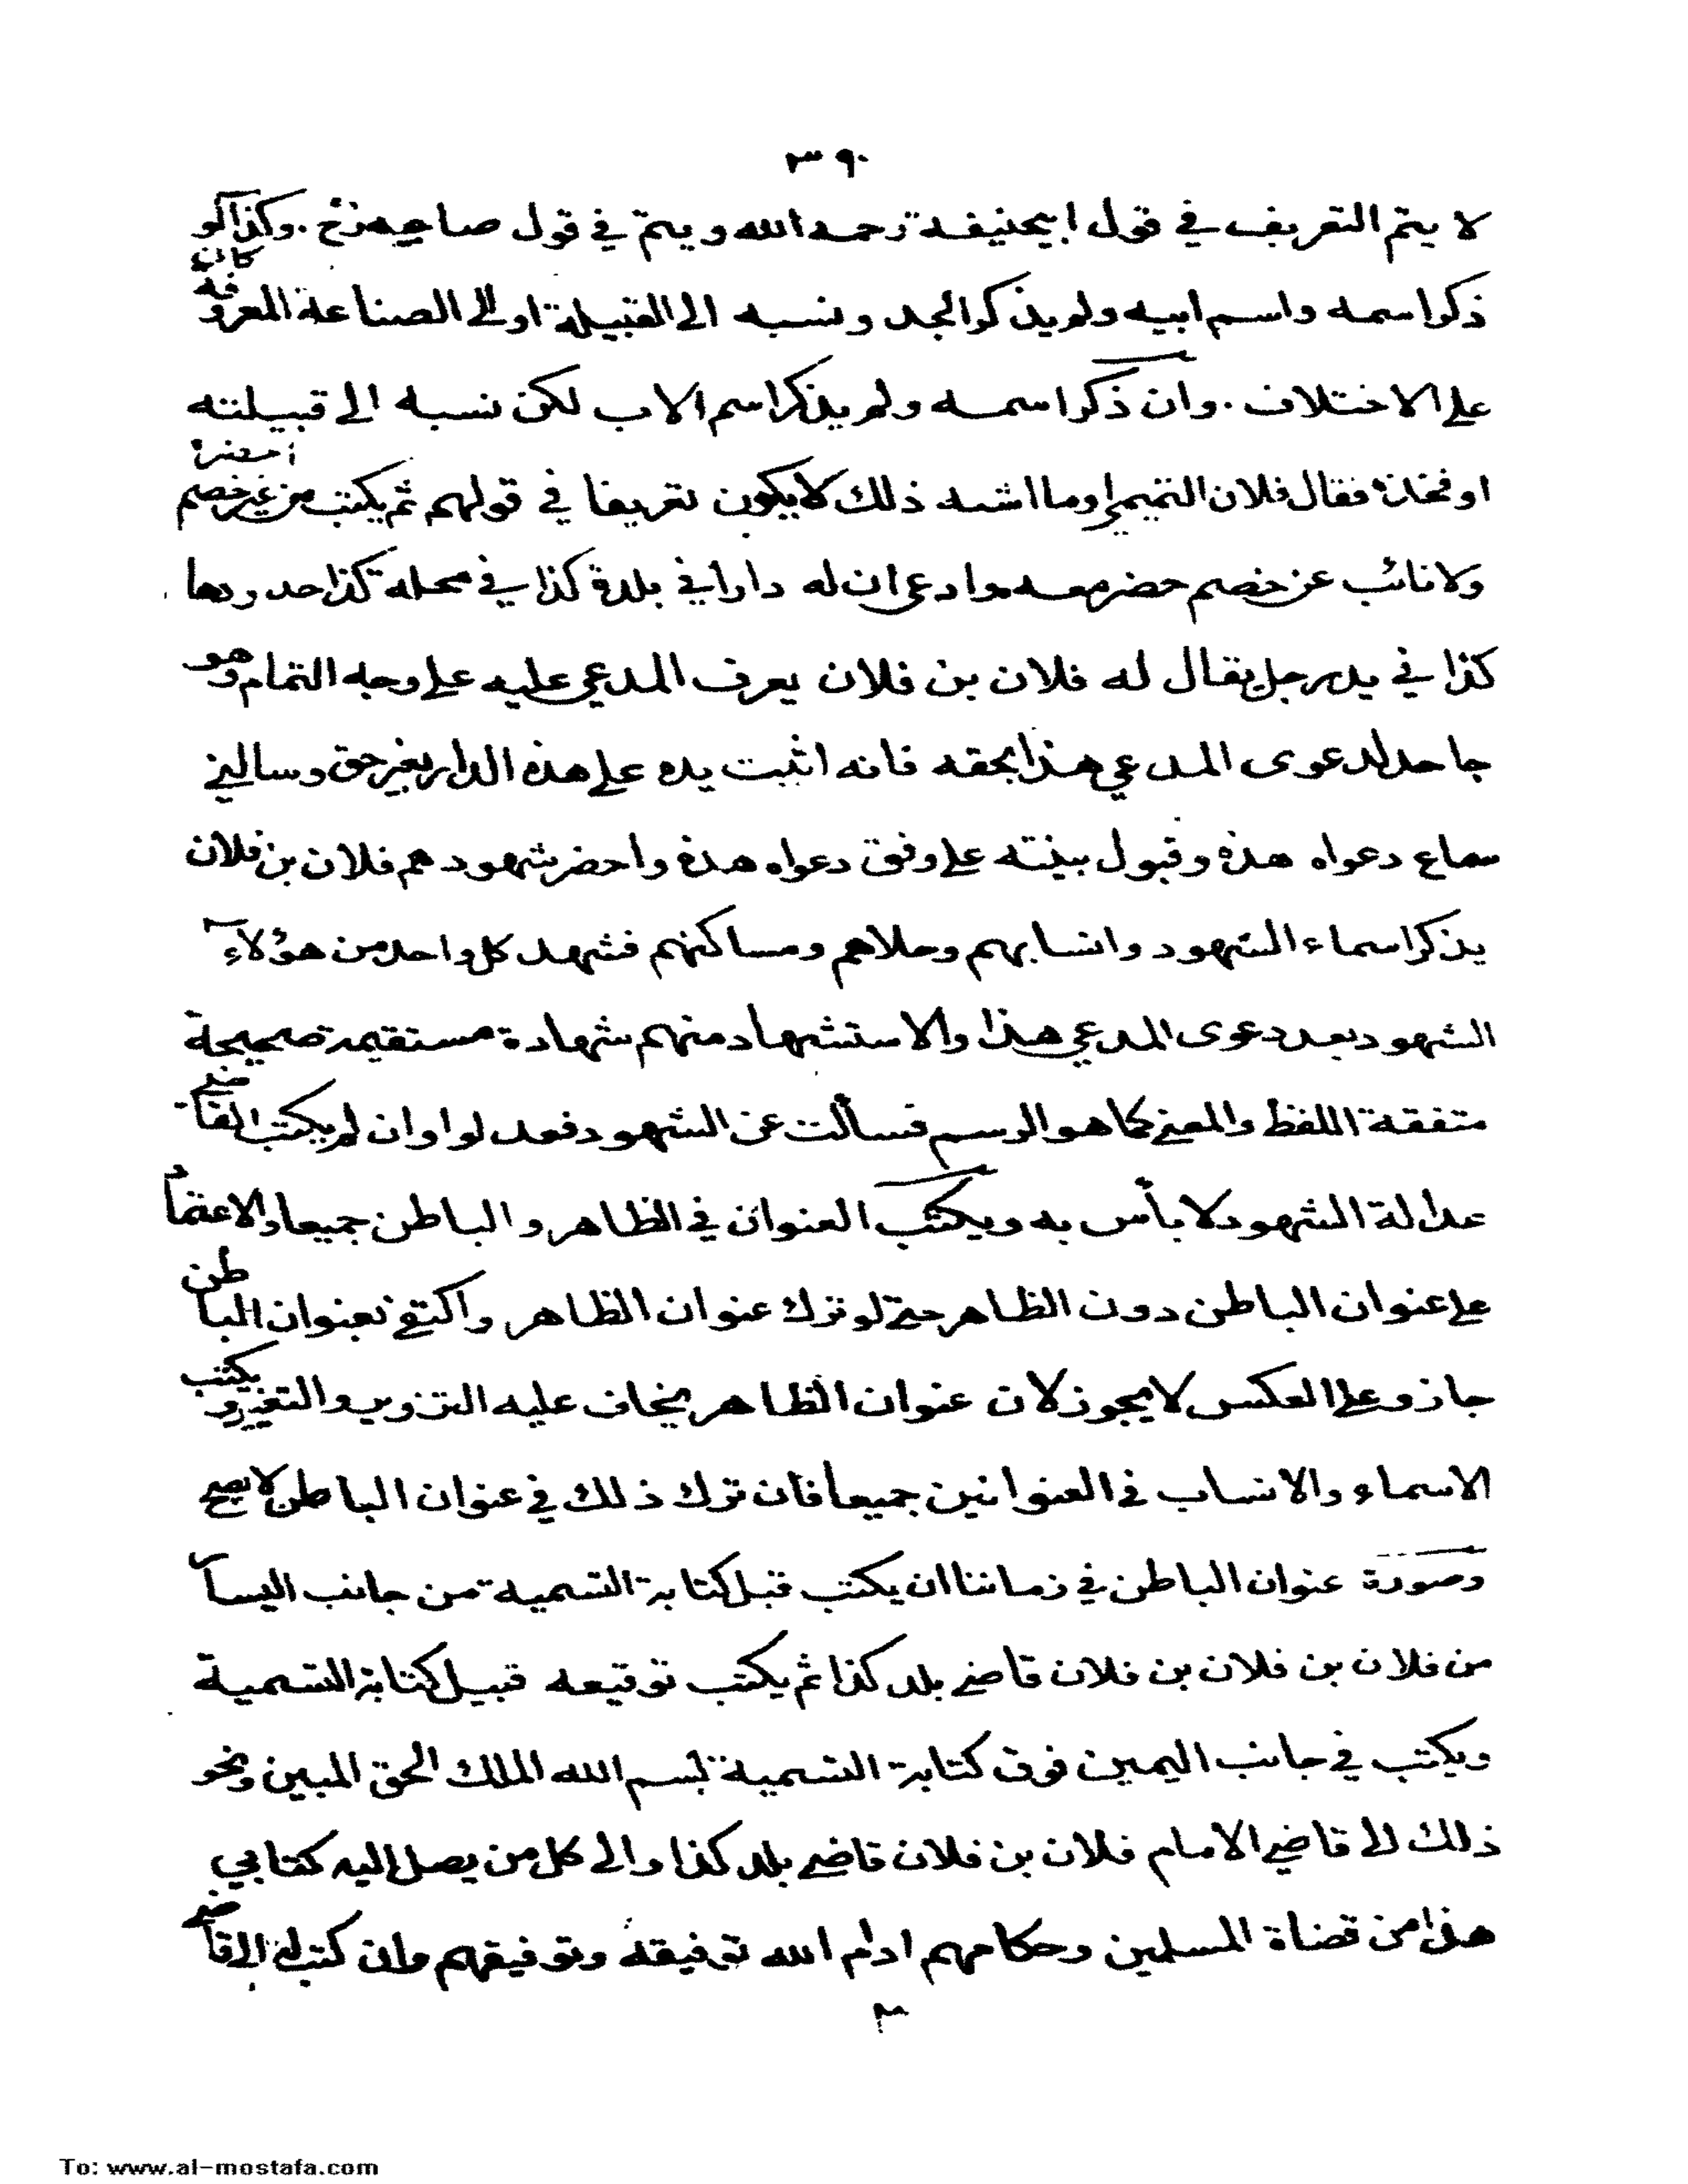 ٣٩٠
لا يتم التعريف في قول ابيحنيفة رحمه الله ويتم في قول صاحبيه رح . وكذا لو كان
ذكر اسمه واسم ابيه ولم يذكر الجد ونسبه الى القبيلة او الى الصناعة المعروفة
على الاختلاف . وان ذكر اسمه ولم يذكر اسم الاب لكن نسبه الى قبيلته
او فخذه فقال فلان التميمي وما اشبه ذلك لا يكون تعريفا في قولهم ثم يكتب من غير خصم احضره
ولا نائب عن خصم حضر معه وادعى ان له دارا في بلدة كذا في محلة كذا حدودها
كذا في يد رجل يقال له فلان بن فلان يعرف المدعى عليه على وجه التمام وهو
جاحد لدعوى المدعي هذا بحقه فانه اثبت يده على هذه الدار بغير حق وسالني
سماع دعواه هذه وقبول بينته على وفق دعواه هذه واحضر شهود هم فلان بن فلان
يذكر اسماء الشهود وانسابهم وحلاهم ومساكنهم فشهد كل واحد من هؤلاء
الشهود بعد دعوى المدعي هذا والاستشهاد منهم شهادة مستقيمة صحيحة
متفقة اللفظ والمعنى كما هو الرسم فسألت عن الشهود فعدلوا وان لم يكتب القاضي
عدالة الشهود لا بأس به ويكتب العنوان في الظاهر والباطن جميعا والاعتماد
على عنوان الباطن دون الظاهر حتى لو ترك عنوان الظاهر واكتفى بعنوان الباطن
جاز وعلى العكس لا يجوز لان عنوان الظاهر يخاف عليه التزوير والتغيير ويكتب
الاسماء والانساب في العنوانين جميعا فان ترك ذلك في عنوان الباطن لا يصح
وصورة عنوان الباطن في زماننا ان يكتب قبل كتابة التسمية من جانب اليسار
من فلان بن فلان بن فلان قاضي بلد كذا ثم يكتب توقيعه قبيل كتابة التسمية
ويكتب في جانب اليمين فوق كتابة التسمية بسم الله الملك الحق المبين ونحو
ذلك الى قاضي الامام فلان بن فلان قاضي بلد كذا والى كل من يصل اليه كتابي
هذا من قضاة المسلمين وحكامهم ادام الله توفيقه وتوفيقهم وان كتب الى القاضي
To: www.al-mostafa.com